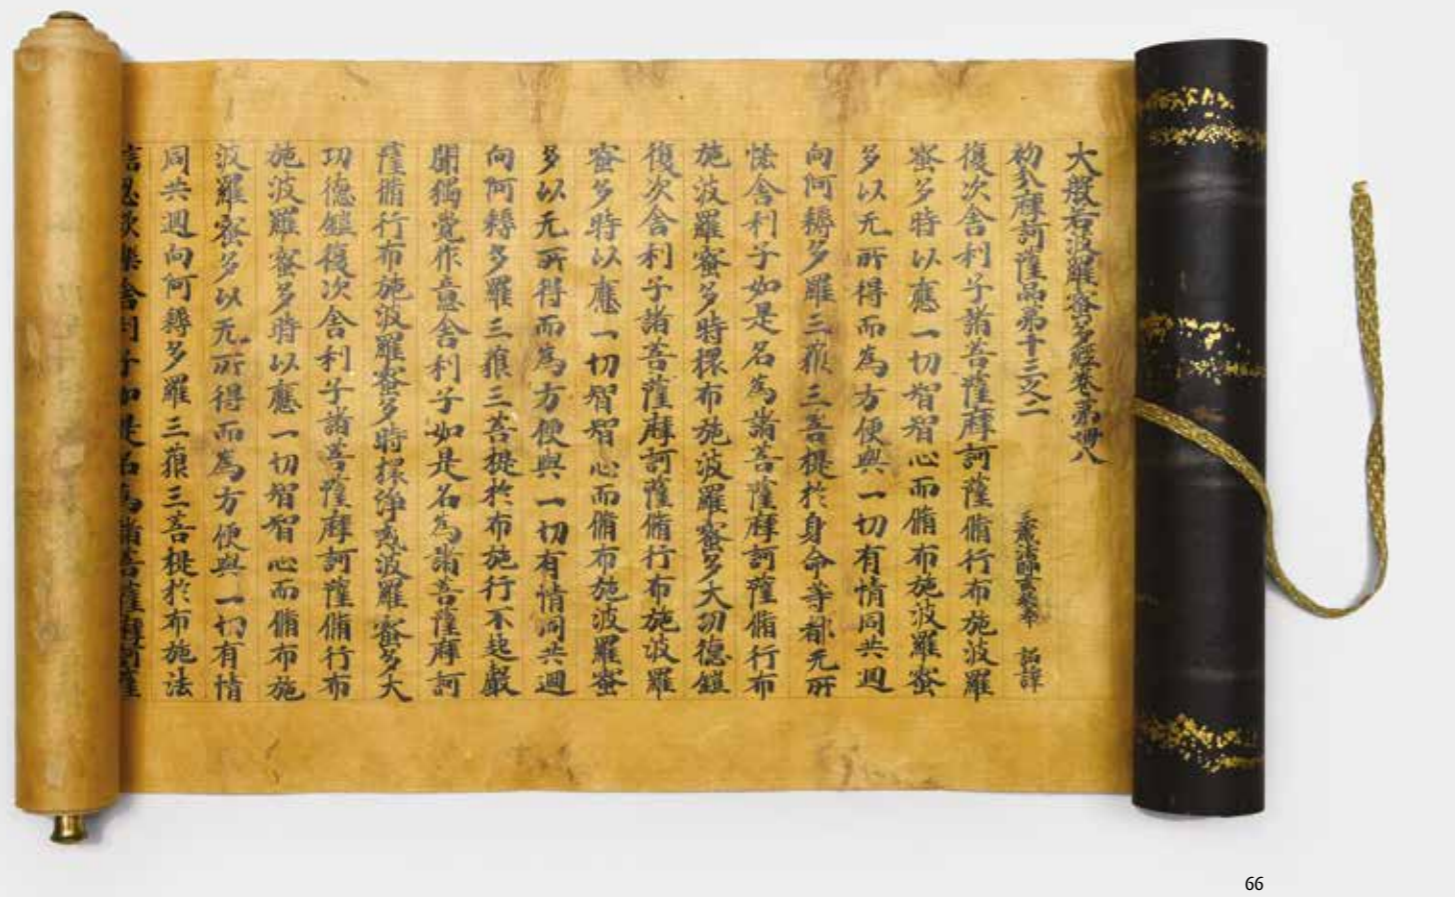 大般若波羅蜜多經卷第卌八
初分摩訶薩品第十三之二 三藏法師玄奘奉 詔譯
復次舍利子諸菩薩摩訶薩脩行布施波羅
蜜多時以應一切智智心而脩布施波羅蜜
多以无所得而為方便與一切有情同共迴
向阿耨多羅三藐三菩提於身命等都无所
悋舍利子如是名為諸菩薩摩訶薩脩行布
施波羅蜜多時擐布施波羅蜜多大功德鎧
復次舍利子諸菩薩摩訶薩脩行布施波羅
蜜多時以應一切智智心而脩布施波羅蜜
多以无所得而為方便與一切有情同共迴
向阿耨多羅三藐三菩提於布施行不起聲
聞獨覺作意舍利子如是名為諸菩薩摩訶
薩脩行布施波羅蜜多時擐淨戒波羅蜜多大
功德鎧復次舍利子諸菩薩摩訶薩脩行布
施波羅蜜多時以應一切智智心而脩布施
波羅蜜多以无所得而為方便與一切有情
同共迴向阿耨多羅三藐三菩提於布施法
信忍欲樂舍利子如是名為諸菩薩摩訶薩
66